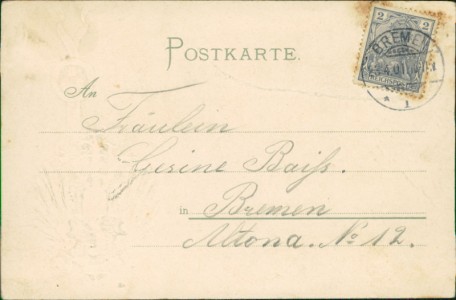 2 2
BREMEN
4.01
1
POSTKARTE.
An
Fräulein
Gesine Baiß.
in Bremen
Altona. No 12.